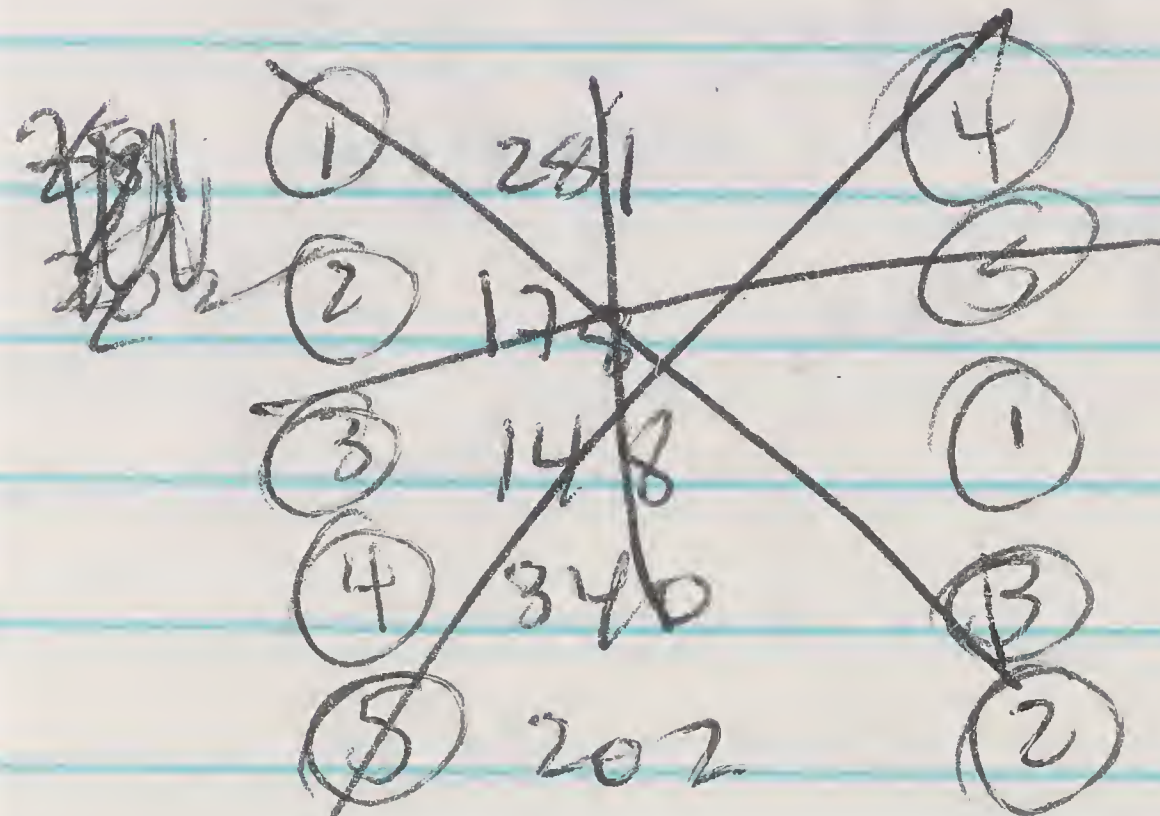 ① 281 ④
② 178 ⑤
③ 148 ①
④ 340 ③
⑤ 202 ②